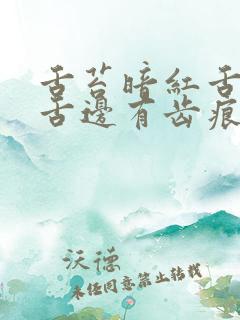 舌苔暗红舌
舌边有齿痕
沃德
未经同意禁止转载